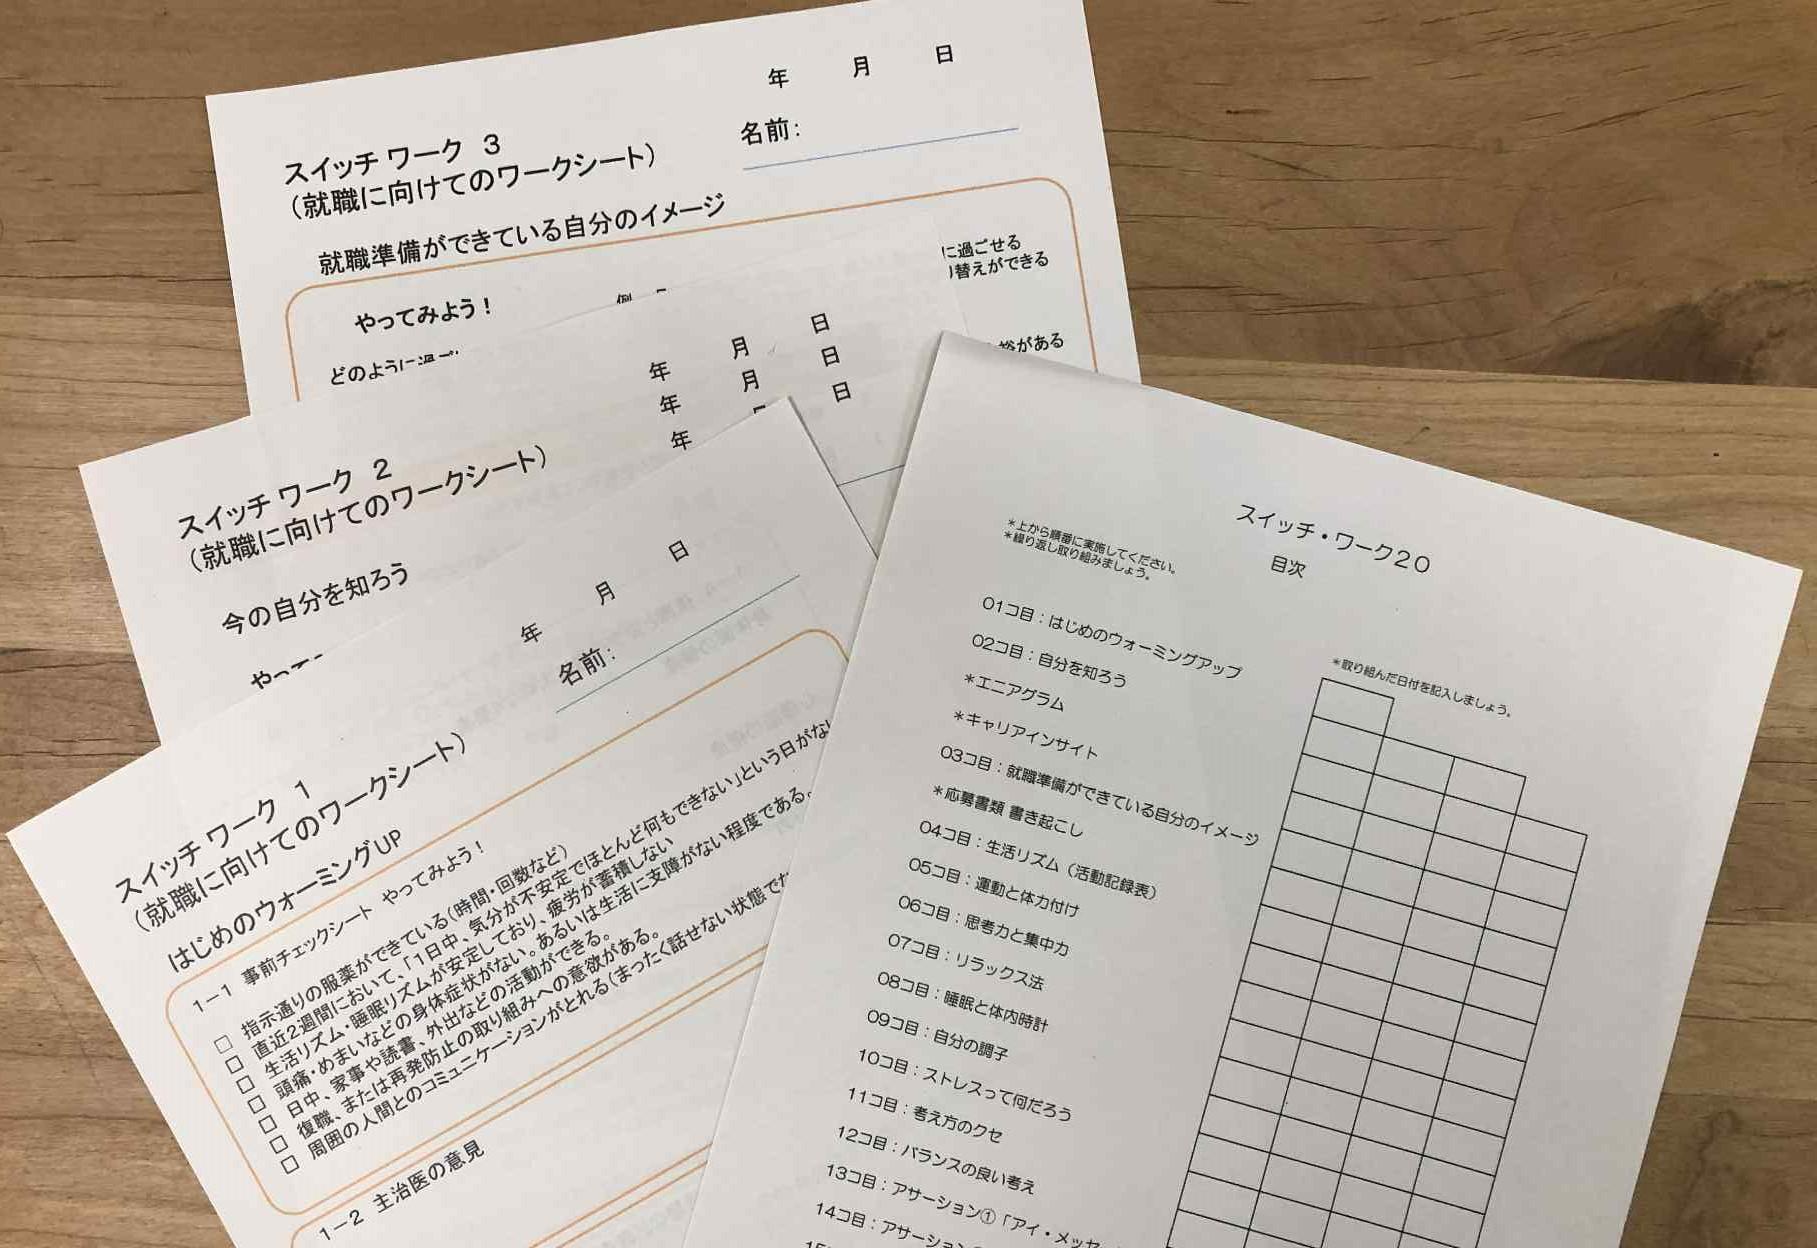 年 月 日
名前:
スイッチ ワーク 3
(就職に向けてのワークシート)
就職準備ができている自分のイメージ
に過ごせる
替えができる
やってみよう!
例
どのように過ご
裕がある
年 月 日
年 月 日
年 日
スイッチ ワーク 2
(就職に向けてのワークシート)
今の自分を知ろう
やって
年 月 日
名前:
スイッチ ワーク 1
(就職に向けてのワークシート)
はじめのウォーミングUP
1-1 事前チェックシート やってみよう!
□ 指示通りの服薬ができている(時間・回数など)
□ 直近2週間において、「1日中、気分が不安定でほとんど何もできない」という日がな
□ 生活リズム・睡眠リズムが安定しており、疲労が蓄積しない
□ 頭痛・めまいなどの身体症状がない。あるいは生活に支障がない程度である。
□ 日中、家事や読書、外出などの活動ができる。
□ 復職、または再発防止の取り組みへの意欲がある。
□ 周囲の人間とのコミュニケーションがとれる(まったく話せない状態で
1-2 主治医の意見
スイッチ・ワーク20
目次
*上から順番に実施してください。
*繰り返し取り組みましょう。
*取り組んだ日付を記入しましょう。
01コ目:はじめのウォーミングアップ
02コ目:自分を知ろう
*エニアグラム
*キャリアインサイト
03コ目:就職準備ができている自分のイメージ
*応募書類 書き起こし
04コ目:生活リズム(活動記録表)
05コ目:運動と体力付け
06コ目:思考力と集中力
07コ目:リラックス法
08コ目:睡眠と体内時計
09コ目:自分の調子
10コ目:ストレスって何だろう
11コ目:考え方のクセ
12コ目:バランスの良い考え
13コ目:アサーション①「アイ・メッセ
14コ目:アサーション